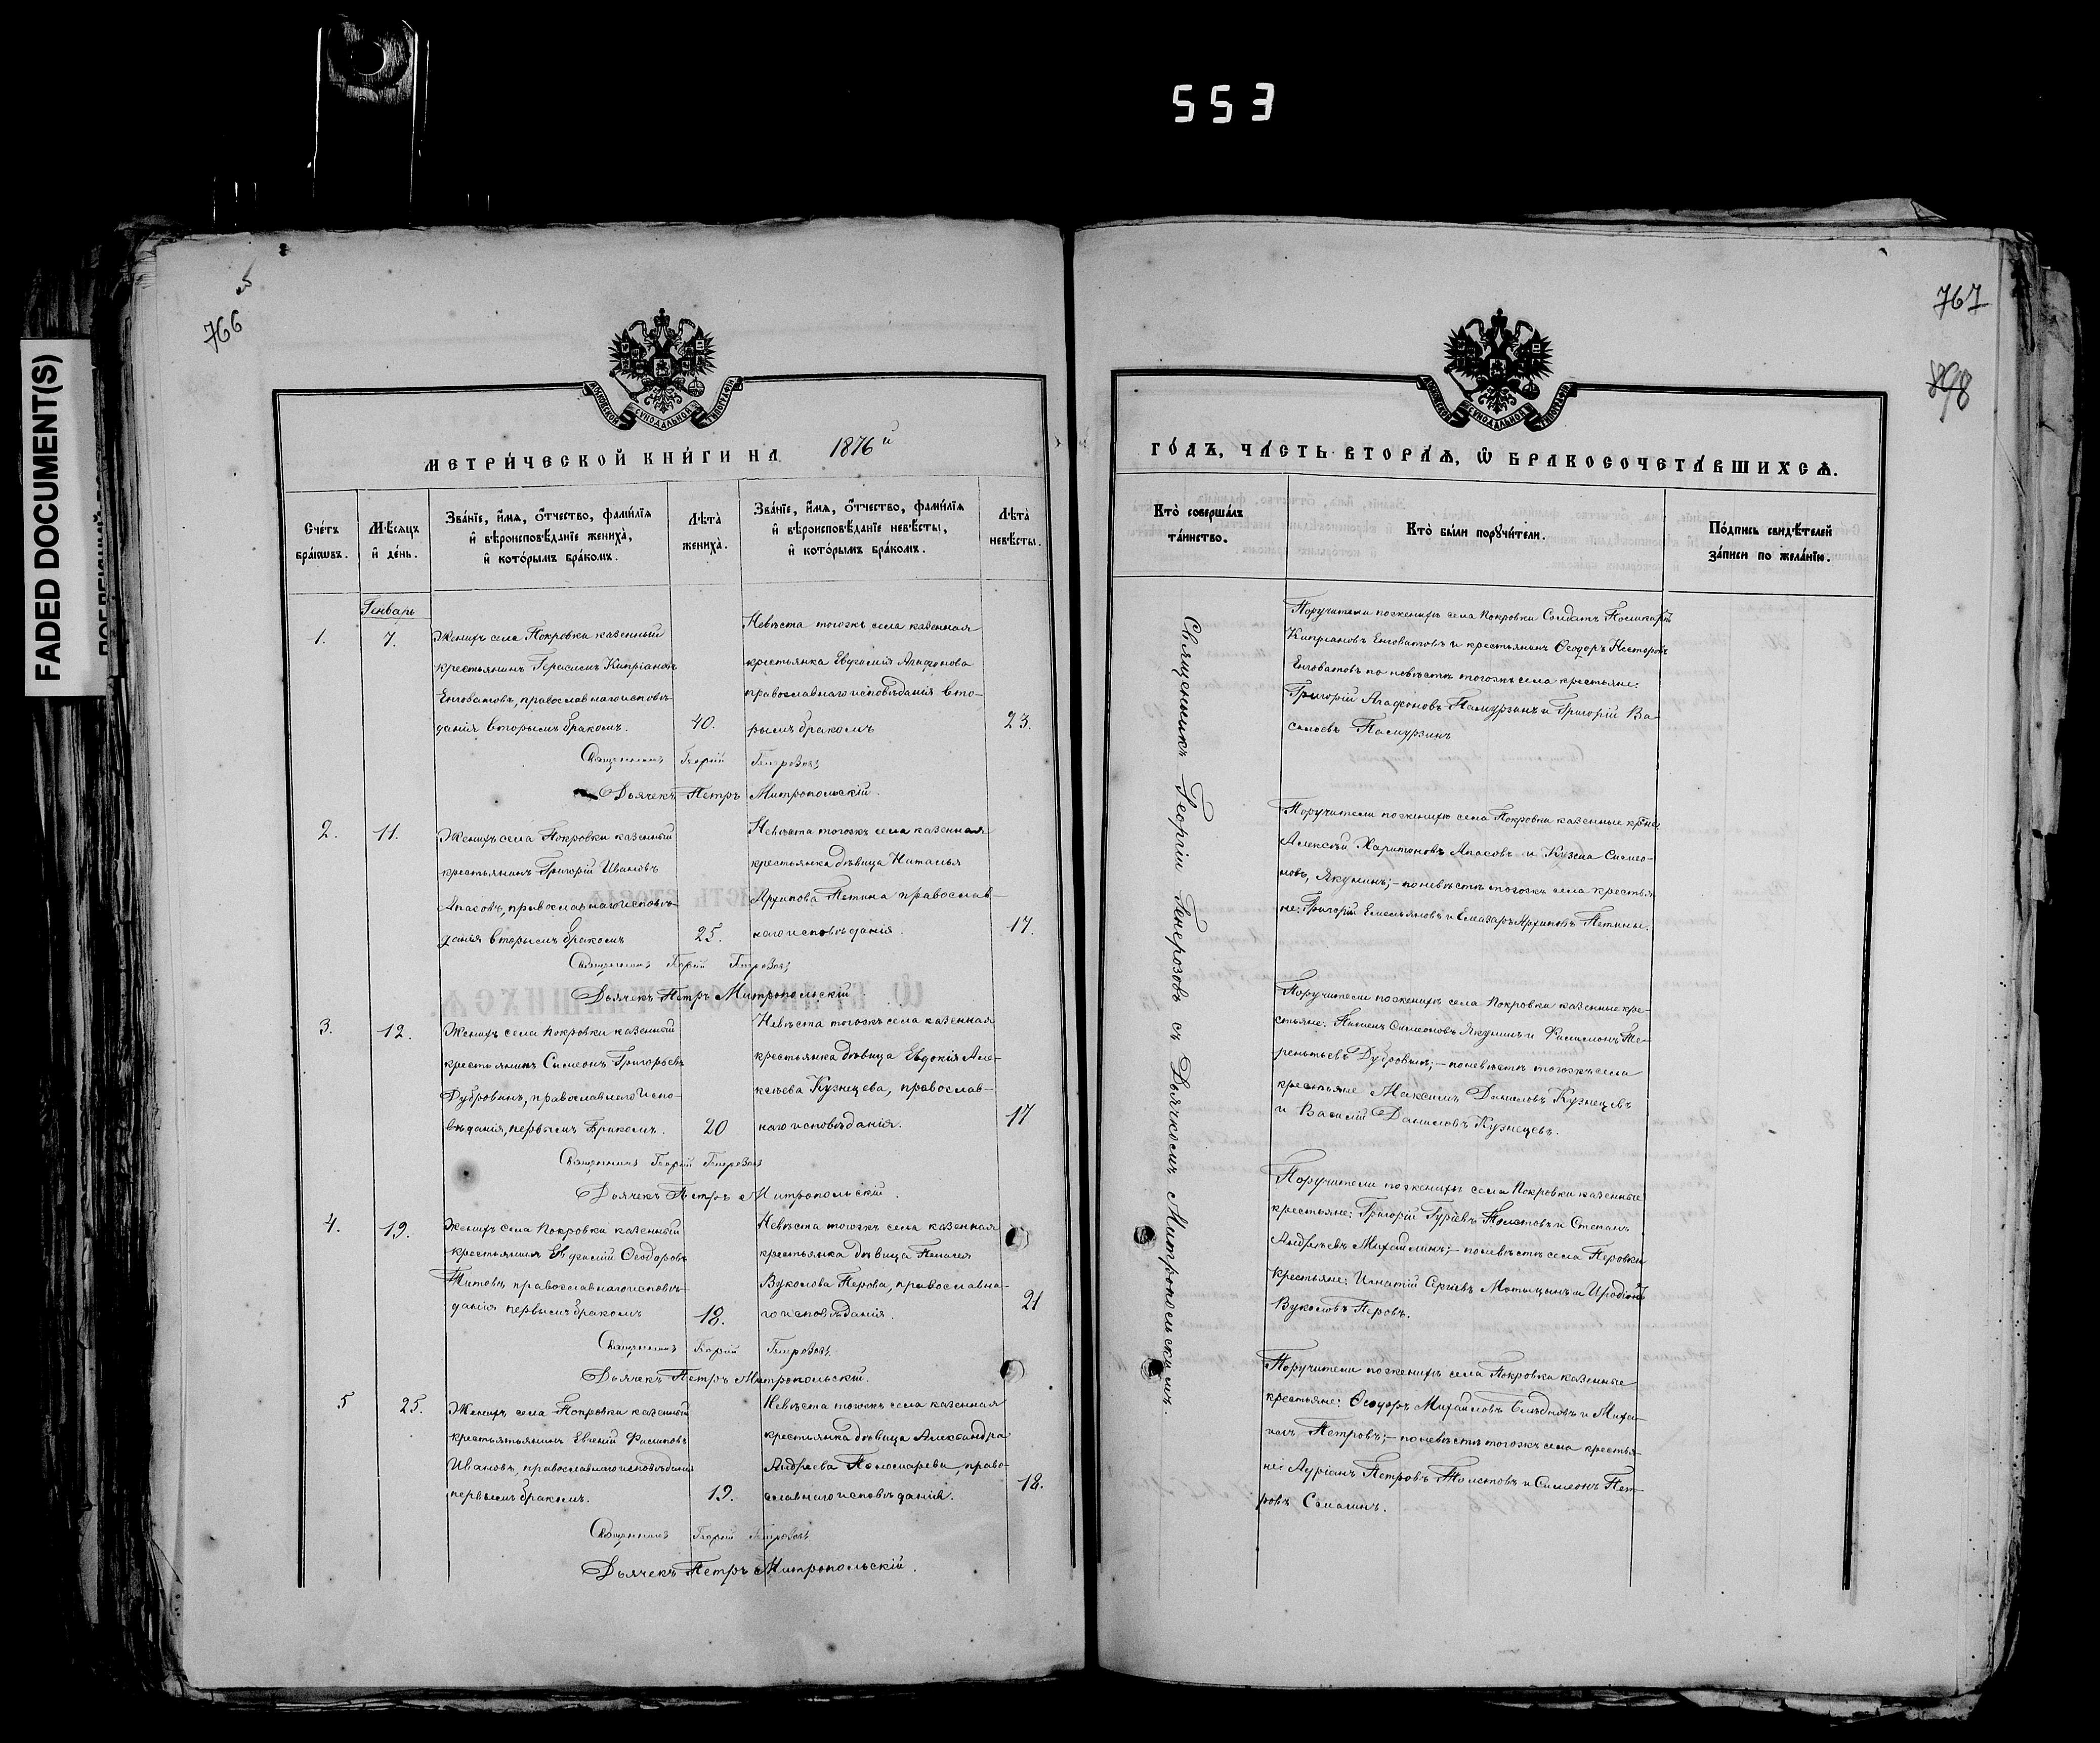 553
FADED DOCUMENT(S)
766
767
898
МОСКОВСКОЙ СУНОДАЛЬНОЙ ТИПОГРАФІИ
МЕТРИ́ЧЕСКОЙ КНИ́ГИ НА 1876й
Сче́тъ бра́кѡвъ.
Мѣ́сяцъ и҆ де́нь.
Зва́нїе, и҆́мѧ, ѻ҆́тчество, фами́лїѧ
и҆ вѣроисповѣ́данїе жениха̀,
и҆ кото́рымъ бра́комъ.
Лѣта̀ жениха̀.
Зва́нїе, и҆́мѧ, ѻ҆́тчество, фами́лїѧ
и҆ вѣроисповѣ́данїе невѣ́сты,
и҆ кото́рымъ бра́комъ.
Лѣта̀ невѣ́сты.
Генварь
1.
7.
Женихъ села Покровки казенный
крестьянинъ Герасимъ Кипріановъ
Енговатовъ, православнаго исповѣ-
данія вторымъ бракомъ.
40.
Невѣста тогожъ села казенная
крестьянка Евфимія Агафонова
православнаго исповѣданія вто-
рымъ бракомъ
23.
Священникъ Георгій Генерозовъ
Дьячекъ Петръ Митропольскій.
2.
11.
Женихъ села Покровки казенный
крестьянинъ Григорій Ивановъ
Апасовъ, православнаго исповѣ-
данія вторымъ бракомъ
25.
Невѣста тогожъ села казенная
крестьянка дѣвица Наталья
Архипова Петина православ-
наго исповѣданія.
17.
Священникъ Георгій Генерозовъ
Дьячекъ Петръ Митропольскій
3.
12.
Женихъ села Покровки казенный
крестьянинъ Симеонъ Григорьевъ
Дубровинъ, православнаго испо-
вѣданія, первымъ бракомъ.
20
Невѣста тогожъ села казенная
крестьянка дѣвица Евдокія Але-
ксѣева Кузнецева, православ-
наго исповѣданія.
17
Священникъ Георгій Генерозовъ
Дьячекъ Петръ Митропольскій.
4.
19.
Женихъ села Покровки казенный
крестьянинъ Евфимій Ѳеодоровъ
Титовъ православнаго исповѣ-
данія первымъ бракомъ
18.
Невѣста тогожъ села казенная
крестьянка дѣвица Пелагея
Вуколова Перова, православна-
го исповѣданія.
21
Священникъ Георгій Генерозовъ
Дьячекъ Петръ Митропольскій.
5
25.
Женихъ села Покровки казенный
крестьятьянинъ Евгеній Филиповъ
Ивановъ, православнаго исповѣданія
первымъ бракомъ.
19.
Невѣста тогожъ села казенная
крестьянка дѣвица Александра
Андреева Пономарева, право-
славнаго исповѣданія.
18.
Священникъ Георгій Генерозовъ
Дьячекъ Петръ Митропольскій.
МОСКОВСКОЙ СУНОДАЛЬНОЙ ТИПОГРАФІИ
ГО́ДЪ, ЧА́СТЬ ВТОРА́Ѧ, Ѿ БРАКОСОЧЕТА́ВШИХСѦ.
Кто̀ соверша́лъ та́инство.
Кто̀ бы́ли порꙋчи́тели.
По́дпись свидѣ́телей
за́писи по жела́нїю.
Священникъ Георгій Генерозовъ съ Дьячкомъ Митропольскимъ.
Поручители по женихѣ села Покровки Солдатъ Поликарпъ
Кипріановъ Енговатовъ и крестьянинъ Ѳеодоръ Нестеровъ
Енговатовъ по невѣстѣ тогожъ села крестьяне:
Григорій Агафоновъ Памурзинъ и Григорій Ва-
сильевъ Памурзинъ
Поручители по женихѣ села Покровки казенные крестьяне
Алексѣй Харитоновъ Апасовъ и Кузма Симео-
новъ, Якунинъ; – по невѣстѣ тогожъ села крестья-
не: Григорій Емельяновъ и Елизаръ Архиповъ Петины.
Поручители по женихѣ села Покровки казенные кре-
стьяне: Пименъ Симеоновъ Якунинъ и Филимонъ Те-
рентьевъ Дубровинъ; – по невѣстѣ тогожъ села
крестьяне Максимъ Даниловъ Кузнецевъ
и Василій Даниловъ Кузнецевъ.
Поручители по женихѣ села Покровки казенные
крестьяне: Григорій Гурьевъ Толстовъ и Степанъ
Андреевъ Михайлинъ; – по невѣстѣ села Перовки
крестьяне: Игнатій Сергіевъ Мотыцынъ и Иродіонъ
Вуколовъ Перовъ.
Поручители по женихѣ села Покровки казенные
крестьяне: Ѳеодоръ Михайловъ Блѣдновъ и Миха-
илъ Петровъ; – по невѣстѣ тогожъ села крестья-
не: Адріанъ Петровъ Толстовъ и Симеонъ Пет-
ровъ Семагинъ.